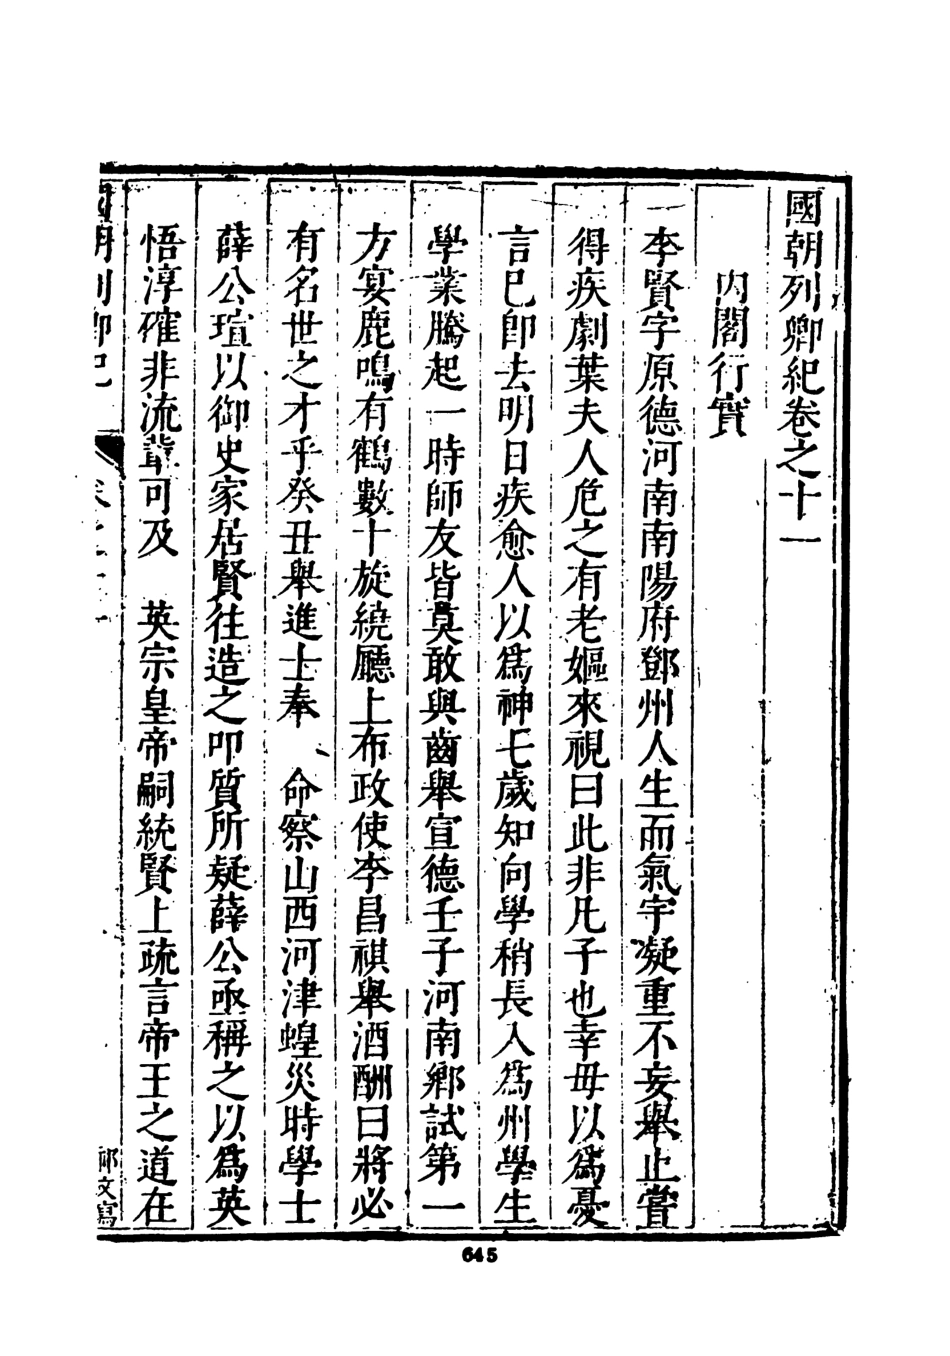 國朝列卿紀卷之十一
內閣行實
李賢字原德河南南陽府鄧州人生而氣宇凝重不妄舉止嘗
得疾劇葉夫人危之有老嫗來視曰此非凡子也幸毋以爲憂
言已卽去明日疾愈人以爲神七歲知向學稍長入爲州學生
學業騰起一時師友皆莫敢與齒舉宣德壬子河南鄉試第一
方宴鹿鳴有鶴數十旋繞廳上布政使李昌祺舉酒酬曰將必
有名世之才乎癸丑舉進士奉　命察山西河津蝗災時學士
薛公瑄以御史家居賢往造之叩質所疑薛公亟稱之以爲英
悟淳確非流輩可及　英宗皇帝嗣統賢上疏言帝王之道在
國朝列卿紀
卷之十一
邤文寫
645